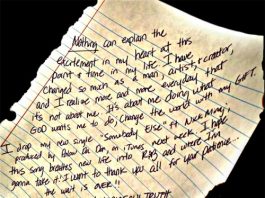 Nothing can explain the
excitement in my heart at this
point & time in my life. I have
changed so much as a man, artist, creator,
and I realize more and more everyday that
it's not about me. It's about me doing what my
God wants me to do; change the world with my GIFT.
I drop my new single "Somebody Else" ft Nicki Minaj,
produced by Polow da Don, on iTunes next week. I hope
this song breathes new life into R&B and where I'm
gonna take it! I want to thank you all for your patience..
the wait is over!!
TRUTH